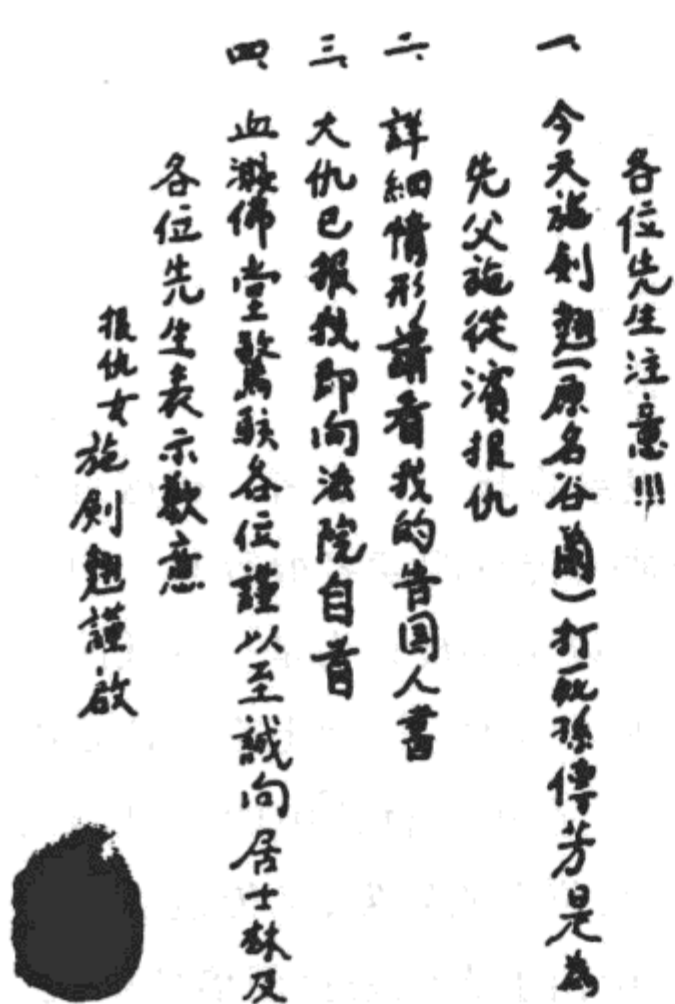 各位先生注意!!!
一、今天施劍翹(原名谷蘭)打死孫傳芳是為
先父施從濱報仇
二、詳細情形請看我的告国人書
三、大仇已報我即向法院自首
四、血濺佛堂驚駭各位謹以至誠向居士林及
各位先生表示歉意
報仇女施劍翹謹啟